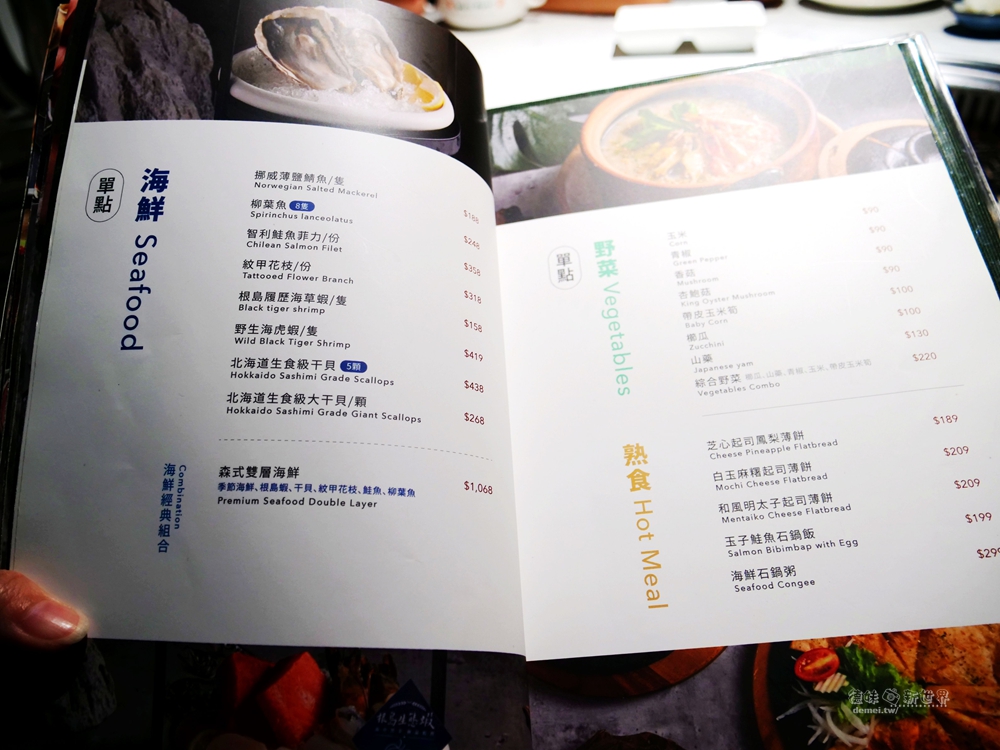 單點
海鮮 Seafood
挪威薄鹽鯖魚/隻
Norwegian Salted Mackerel
$188
柳葉魚 8隻
Spirinchus lanceolatus
$248
智利鮭魚菲力/份
Chilean Salmon Filet
$358
紋甲花枝/份
Tattooed Flower Branch
$318
根島履歷海草蝦/隻
Black tiger shrimp
$158
野生海虎蝦/隻
Wild Black Tiger Shrimp
$419
北海道生食級干貝 5顆
Hokkaido Sashimi Grade Scallops
$438
北海道生食級大干貝/顆
Hokkaido Sashimi Grade Giant Scallops
$268
Combination
海鮮經典組合
森式雙層海鮮
季節海鮮、根島蝦、干貝、紋甲花枝、鮭魚、柳葉魚
Premium Seafood Double Layer
$1,068
單點
野菜 Vegetables
玉米
Corn
$90
青椒
Green Pepper
$90
香菇
Mushroom
$90
杏鮑菇
King Oyster Mushroom
$90
帶皮玉米筍
Baby Corn
$100
櫛瓜
Zucchini
$100
山藥
Japanese yam
$130
綜合野菜 櫛瓜、山藥、青椒、玉米、帶皮玉米筍
Vegetables Combo
$220
熟食 Hot Meal
芝心起司鳳梨薄餅
Cheese Pineapple Flatbread
$189
白玉麻糬起司薄餅
Mochi Cheese Flatbread
$209
和風明太子起司薄餅
Mentaiko Cheese Flatbread
$209
玉子鮭魚石鍋飯
Salmon Bibimbap with Egg
$199
海鮮石鍋粥
Seafood Congee
$299
德味新世界
demei.tw/